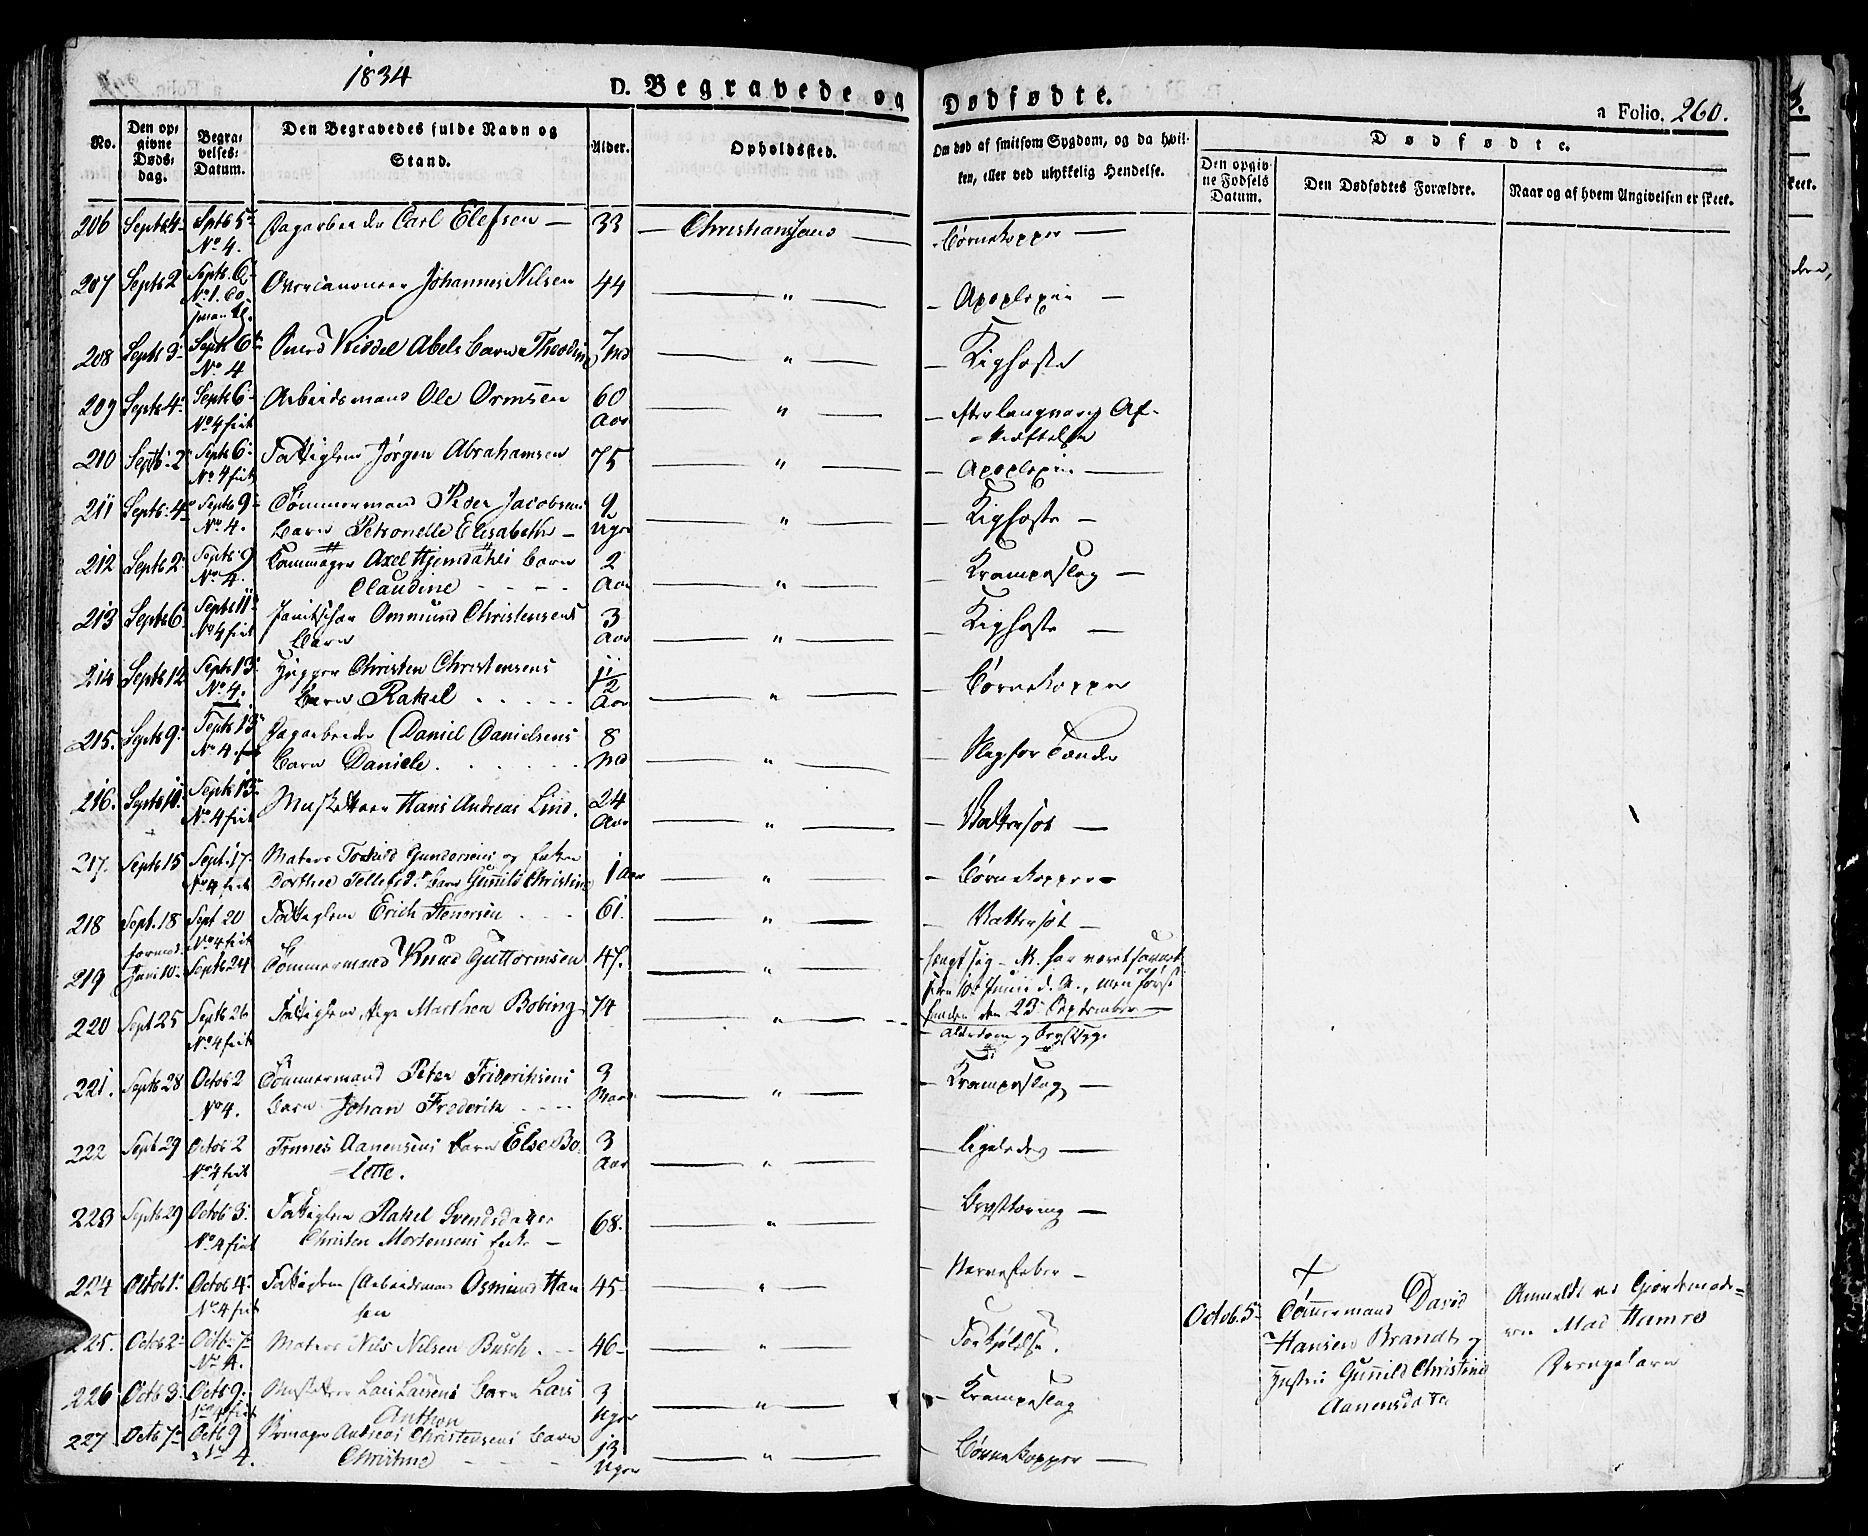 1834
D. Begravede og Dødfødte.
a Folio. 260.
No.
Den opgivne Døds-dag.
Begravelses-Datum.
Den Begravedes fulde Navn og Stand.
Alder.
Opholdssted.
Om død af smitsom Sygdom, og da hvilken, eller ved ulykkelig Hendelse.
Dødfødte.
Den opgivne Fødsels Datum.
Den Dødfødtes Forældre.
Naar og af hvem Angivelsen er skeet.
206 Septb 4 Sptb 5 No 4. Dagarbeider Carl Elefsen 33 Christianssand Børnekopper
207 Septb 2 Septb. 6 No 1. Overcanoneer Johannes Nilsen 44 " Apoplexie
208 Septb 3 Septb 6 No 4 Riddel Abels Barn 7 Md " Kighoste
209 Septb 4 Septb 6 No 4 frit Arbeidsmand Ole Ormsen 60 Aar " Efter langvarig Af-
=kræftelse
210 Septb. 2 Septb 6 No 4 frit Fattiglem Jørgen Abrahamsen 75 " Apoplexie
211 Septb. 4 Septb 9 No 4. Tømmermand Peder Jacobsens 9 Uger " Kighoste
Barn Petronelle Elisabeth
212 Septb 2 Septb 9 No 4. Axel Hjemdahls Barn 2 Aar " Krampeslag
Claudine
213 Septb 6 Septb 11 No 4 frit Janitschar Ommund Christensens 3 Aar " Kighoste
Barn
214 Septb 12 Septb 13 No 4. Christen Christensens 1/2 Aar " Børnekopper
Barn Rakel
215. Septb 9 Septb 13 No 4. frit Dagarbeider Daniel Danielsens 8 Md " Slag for Tænder
Barn Daniele
216. Septb 10. Septb 13 No 4 frit Musketeer Hans Andreas Lind. 24 Aar " Vattersot
217. Septb 15 Sept. 17 No 4 frit Matros Torkild Gundersens og
Dorthea Tellefsd. Barn Gunnild Christine 1 Aar " Børnekopper
218 Sept. 18 Sept 20 No 4 frit Fattiglem Erich Stenersen 61. " Vattersot
219 formod. Juni 10 Septb 24 Tømmermand Knud Guttormsen 47. " hengt sig - N. har været savnet
siden 10 Junii d. A., men først
funden den 23 September
220 Sept 25 Septb 26 No 4 frit Fattiglem Marthea Bobing 74 " Alderdom og Brystsyge
221. Septb 28 Octob 2 No 4. Tømmermand Peter Frideriksens 3 " Krampeslag
Barn Johan Frederik
222 Septb 29 Octob 2 No 4 frit Tønnes Aanensens Barn Else Bo- 3 Aar " ligeledes
=lette.
223 Septb 29 Octob 3 No 4 frit Fattiglem Rakel Svendsdatter 68. " Brysttæring
Christen Mortensens Enke
224 Octob 1 Octob 4 No 4 frit Fattiglem Arbeidsmand Osmund Han 45 " Nervefeber
sen
225. Octob 2 Octb. 7 No 4. Matros Nils Nilsen Busch. 46 " Forkjølelse.
226 Octb 3 Octb 9. No 4 frit Musketeer Lars Larsens Barn Lars 3 Uger " Krampeslag
Anthon
227 Octb 7 Octb 9 No 4. Andreas Christensens Barn 13 Uger " Børnekopper
Christine
Octob. 5
†
Tømmermand David
Hansen Brandt og
Hustru Gunnild Christine
Aanensdatter
Anmeldt ved Gjordemode-
ren Mad Hamre